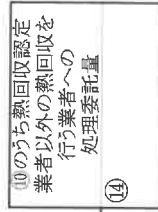 ⑩のうち熱回収認定
業者以外の熱回収を
行う業者への
処理委託量
⑭